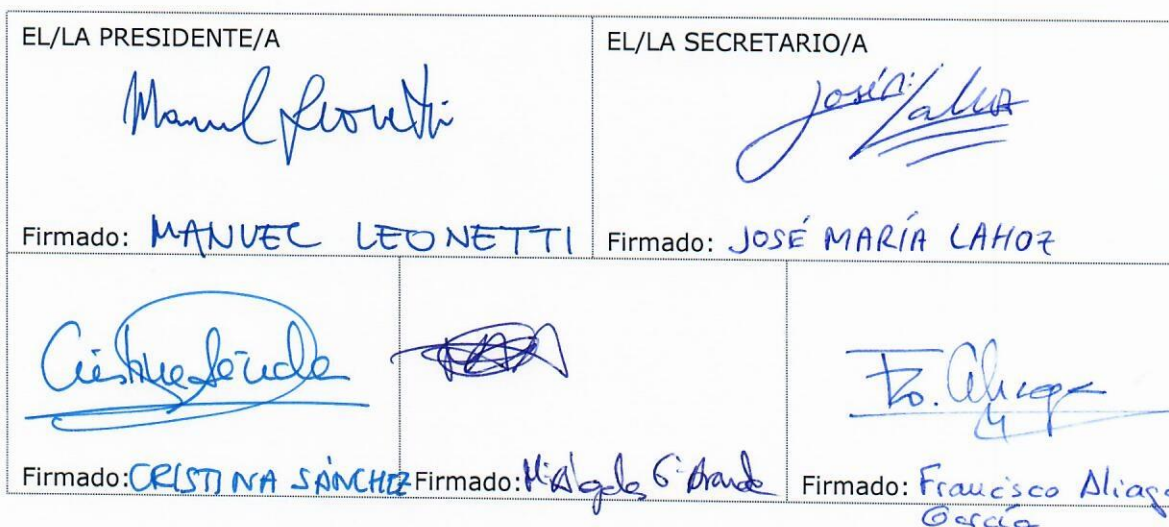 EL/LA PRESIDENTE/A
Manuel Leonetti
Firmado: MANUEL LEONETTI
EL/LA SECRETARIO/A
José Mª Lahoz
Firmado: JOSÉ MARÍA LAHOZ
Cristina Sánchez
Firmado: CRISTINA SÁNCHEZ
Firmado: Mª Ángeles Gª Aranda
Fco. Aliaga
Firmado: Francisco Aliaga
García